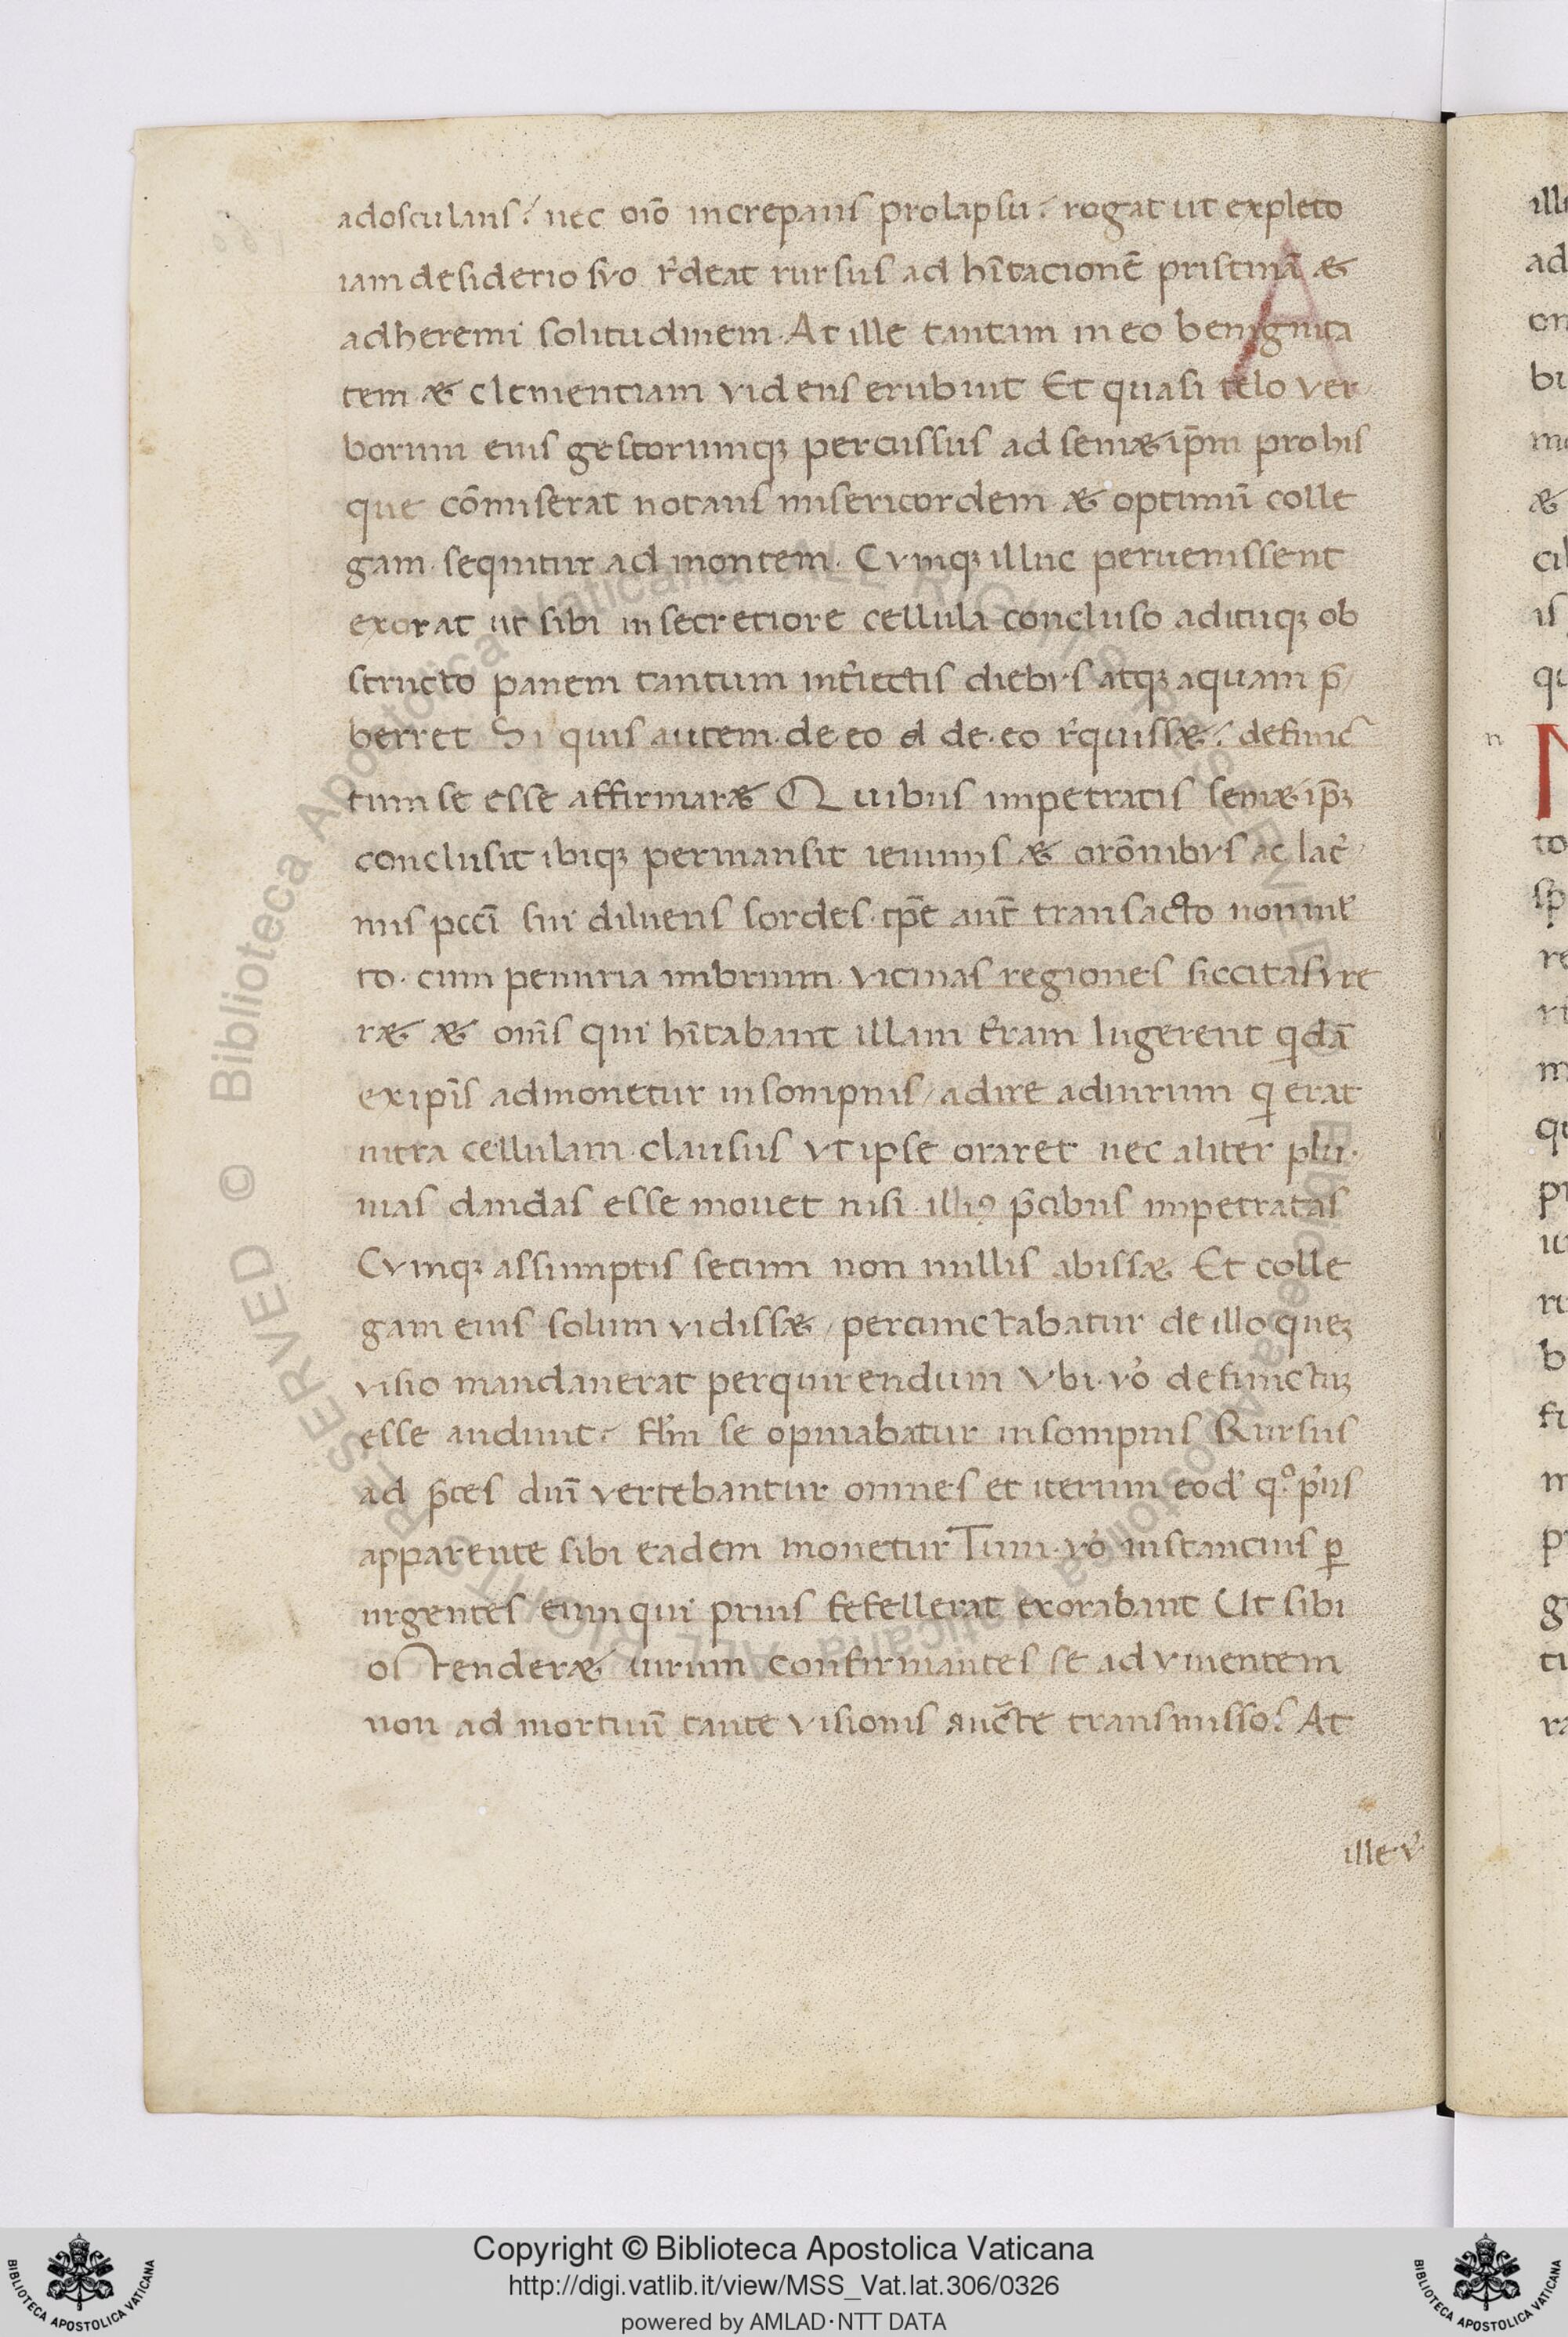 adosculans? nec oīo increpans prolapsū? rogat ut expleto
iam desiderio svo r̄deat rursus ad hītacionē pristinā &
adheremi solitudinem. At ille tantam in eo benignita
tem & clementiam videns erubuit Et quasi telo ver
borum eius gestorumq; percussus ad sem& ip̄m pro his
que cōmiserat notans misericordem & optimū colle
gam. sequitur ad montem. Cvmq; illuc peruenissent
exorat ut sibi in secretiore cellula concluso adituq; ob
structo panem tantum int̄iectis diebvs atq; aquam p̄
berret Si quis autem. de eo de. eo r̄quiss&? defunc
tum se esse affirmar& Quibus impetratis sem& ip̄;
conclusit ibiq; permansit ieiuniis & orōnibvs ac lac̄
mis pccī sui diluens sordes. tp̄e aut̄ transacto non ml̄
to. cum penuria imbrium. vicinas regiones siccitas vre
r& & om̄s qui hītabant illam t̄ram lugerent q̇dā
ex ip̄is admonetur insompnis/ adire aduirum q̇ erat
intra cellulam. clausus vt ipse oraret nec aliter plu.
uias dandas esse mouet nisi illiꝰ p̄cibus impetratas
Cvmq; assumptis secum non nullis abiss& Et colle
gam eius solum vidiss&/ percunctabatur de illo que;
visio mandauerat perquirendum Vbi. v̊o defunctu;
esse audiunt? fl̄m se opinabatur insompnis Rursus
ad p̄ces diuī vertebantur omnes et iterum eod̄ q.º p̓us
apparente sibi eadem monetur Tum. v̊o instancius ꝑ
urgentes eum qui prius fefellerat exorabant Ut sibi
ostender& uirum confirmantes se ad viuentem
non ad mortuū tante visionis auc̄te transmissos At
ille v̊
ill
ad
on
bu
me
&
cil
is
qu
n
N
to
sp
re
ri
m
qu
pr
ri
b
fu
m
pr
ti
ra
© Biblioteca Apostolica Vaticana ALL RIGHTS RESERVED
© Biblioteca Apostolica Vaticana ALL RIGHTS RESERVED
BIBLIOTECA APOSTOLICA VATICANA
Copyright © Biblioteca Apostolica Vaticana
http://digi.vatlib.it/view/MSS_Vat.lat.306/0326
powered by AMLAD·NTT DATA
BIBLIOTECA APOSTOLICA VATICANA